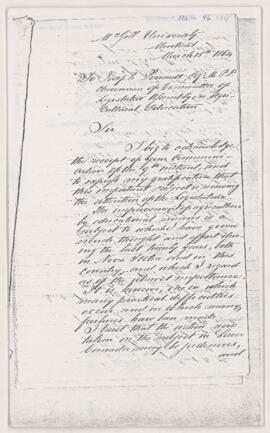 McGill University
Montreal
March 15th 1864
To Joseph Perrault Esq. M.P.P.
Chairman of Committee of
Legislative Assembly on Agri-
cultural Education
Sir
I beg to acknowledge
the receipt of your Communi-
cation of the 9th instant, and
to express my gratification that
this important subject is receiving
the attention of the Legislature.
The improvement of agriculture
by educational means is a
subject to which I have given
much thought and effort during
the last twenty years, both
in Nova Scotia and in this
country, and which I regard
as of the utmost importance.
It is however, one in which
many practical difficulties
occur, and in which many
failures have been made.
I trust that the action now
taken on the subject in Lower
Canada may be judicious,
and